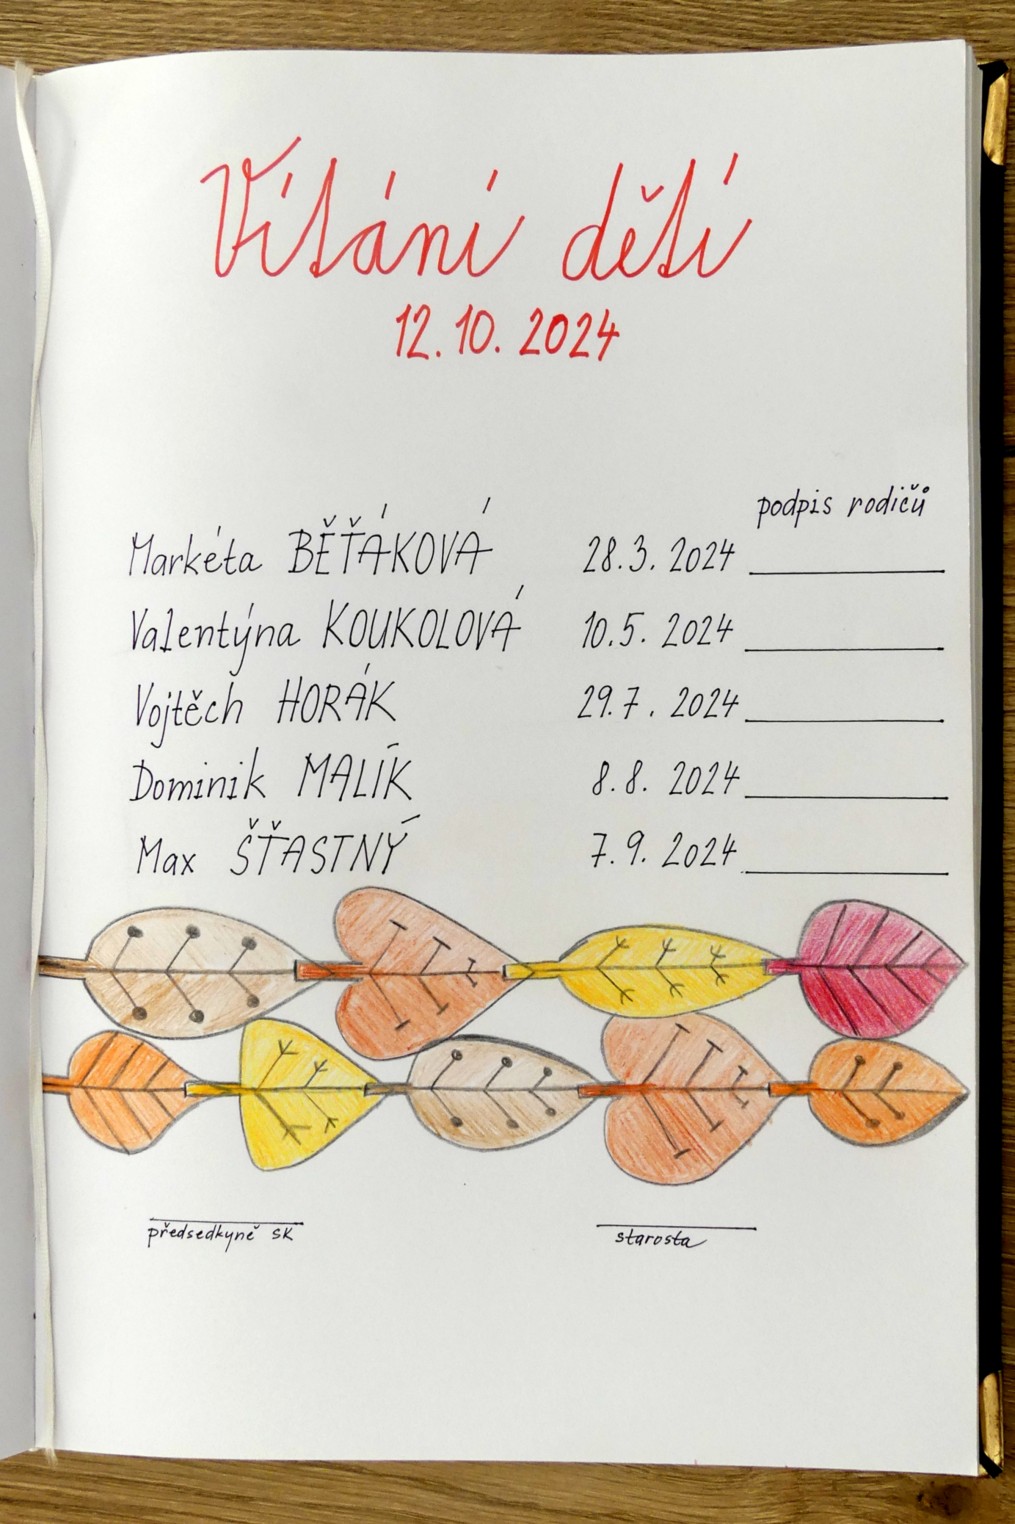 Vítání dětí
12.10.2024
podpis rodičů
Markéta BĚŤÁKOVÁ 28.3.2024
Valentýna KOUKOLOVÁ 10.5.2024
Vojtěch HORÁK 29.7.2024
Dominik MALÍK 8.8.2024
Max ŠŤASTNÝ 7.9.2024
předsedkyně SK starosta